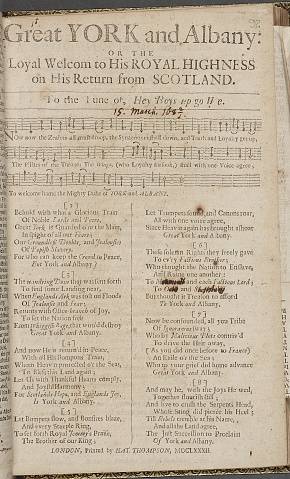 Great YORK and Albany:
OR THE
Loyal Welcom to His ROYAL HIGHNESS
on His Return from SCOTLAND.
To the Tune of, Hey Boys up go We.
15. March. 168
NOw now the Zealots all must droop, the
down, and Truth and Loyalty get up,
The Pillars of the Throne; The
(who Loyalty
) shall with one Voice agree;
To welcome home the Mighty Duke of YORK and ALBANY.
[1]
BEhold with what a Glorious Train
Of Noble
and Peers,
Great York is Guarded o're the Main,
in spight of all our Fears;
Our Groundless Doubts, and Jealousies
Of Popish Slavery,
For who can keep the Grand in Peace,
But York and Albany?
[3]
The
Dove was thus sent forth
To find some Landing near,
When England's Ark was tost on Floods
of Jealousie and Fear,
Returns with Olive-branch of Joy,
To set the Nation free
From
Rage, that would destroy
Great York and Albany.
[4]
And now He is return'd in Peace,
With all His Pompous Train,
Whom Heaven preserv'd o're the Seas,
To Bless this Land again;
Let Us with Thankful Hearts comply,
And Joyful Harmony;
For Scotlands Hope, and Englands Joy,
Is York and Albany.
[5]
Let Bumpers flow, and Bonfires blaze,
And every Steeple Ring,
To set forth Royal Jemmy's Praise,
The Brother of our King;
Let Trumpets sound, and Canons roar,
All with one voice agree,
Since Heaven again has brought ashoar
Great York and Albany.
[6]
Those solemn Rights they freely gave
To ev'ry Factious Brother,
Who thought the Nation to Enslave,
And Ruine one another;
To
and each Factious Lord;
To
and
But thought it Treason to afford
To York and Albany.
[7]
Now be confounded, all you Tribe
Of Ignoramus
Who by Malicious Votes contriv'd
To drive the Heir away,
(As you did once before to France)
An Exile o're the Sea;
Who to your grief did home advance
Great York and Albany.
[8]
And may he, with the Joys He
,
Together flourish still;
And live to crush the Serpents Head,
Whose Sting did pierce his Heel;
Till Rebels tremble at his Name,
And all the Land agree,
The Just Succession to Proclaim
Of York and Albany.
LONDON, Printed by NAT. THOMPSON, MDCLXXXII.